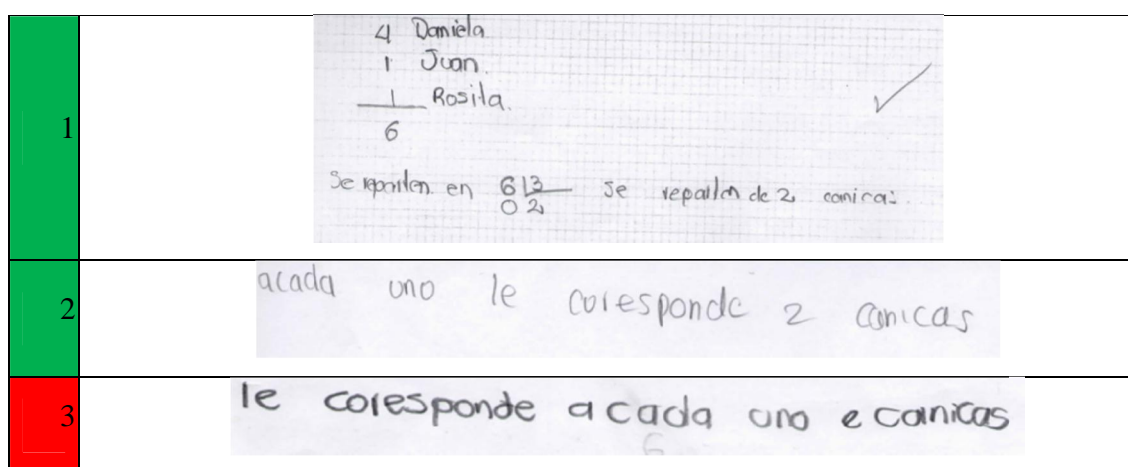 1
4 Daniela
1 Juan.
1 Rosita.
6
Se reparten en 6|3 se reparten de 2 canicas.
0 2
2
acada uno le coresponde 2 canicas
3
le coresponde a cada uno e canicas
6